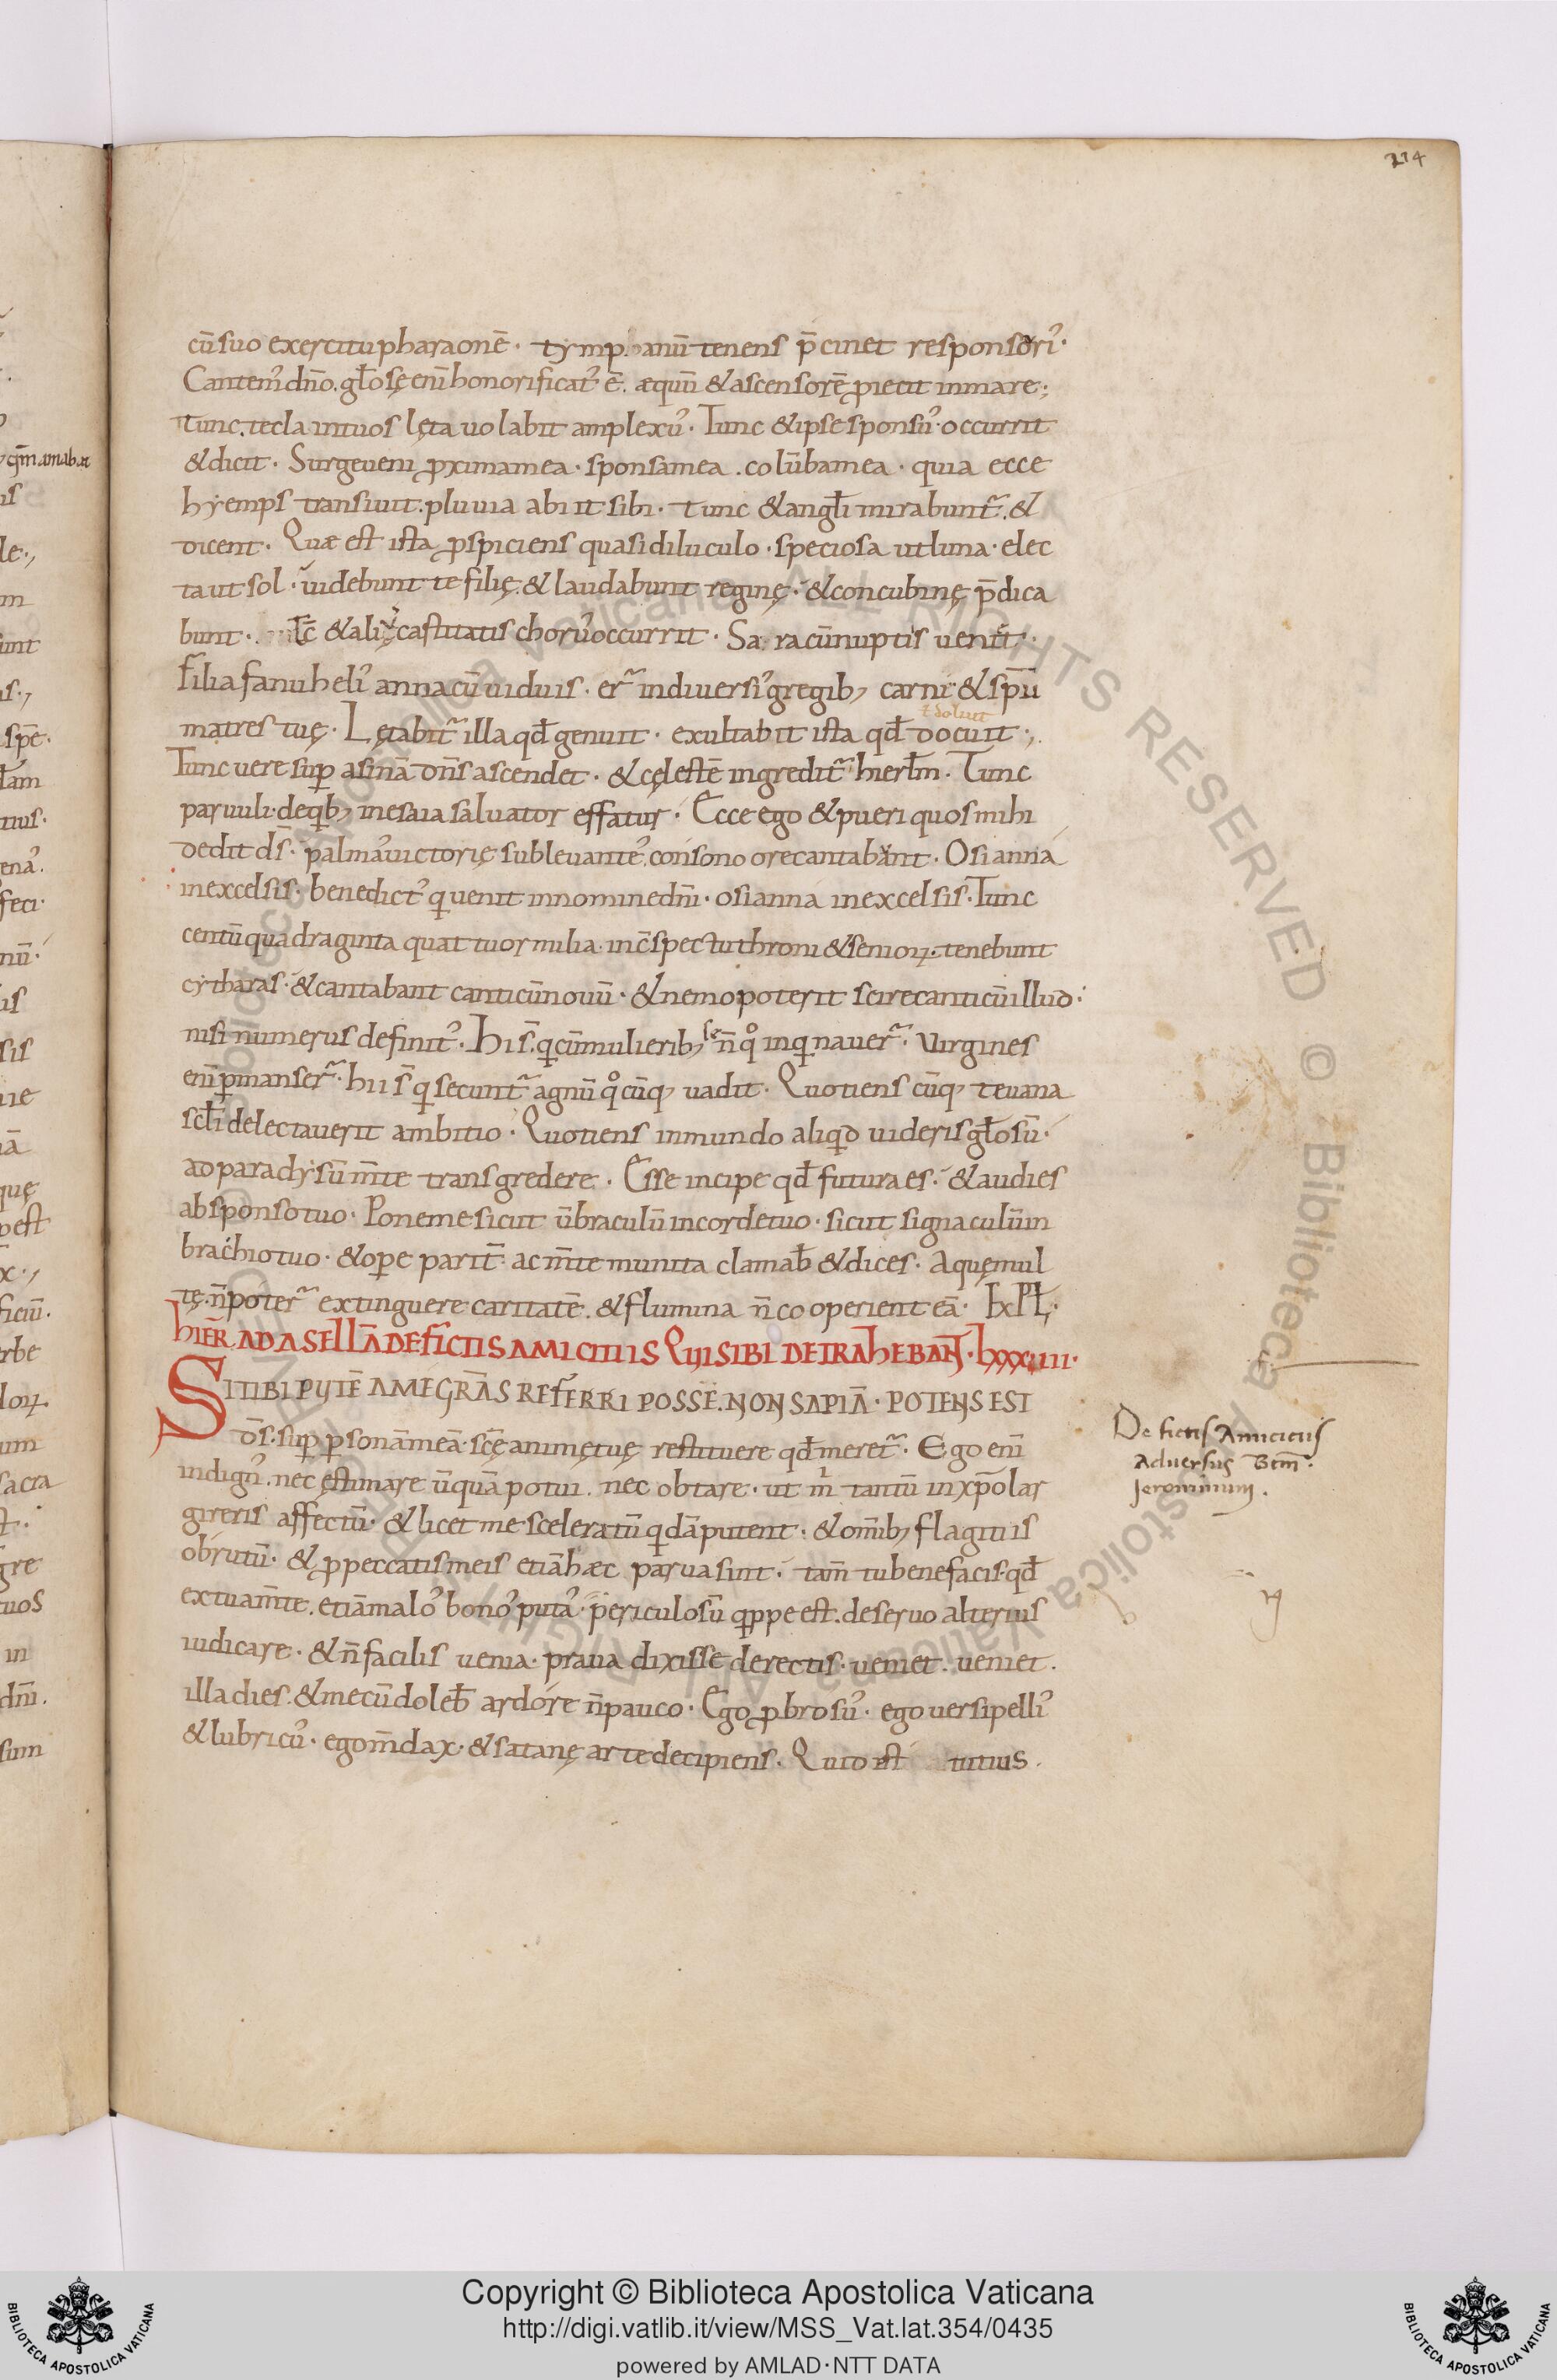 214
cū suo exercitu pharaonē · tympanū tenens p̄cinet responsori᾽·
Cantem᾽ dn̄o. gl̄osę enī honorificat᾽ ē. æquū & ascensorē ꝓiecit in mare;
Tunc tecla in tuos lęta uolabit amplexu᾽· Tunc & ipse sponsu᾽ occurrit
& dicit · Surge ueni ꝓxima mea · sponsa mea . colūba mea · quia ecce
hyemps transiuit. pluuia abiit sibi · Tunc & angl̄i mirabunt̃. &
dicent · Quæ est ista ꝓspiciens quasi diluculo · speciosa ut luna · elec
ta ut sol · uidebunt te filię. & laudabunt reginę · & concubinę p̄dica
bunt · & castitatis choru᾽ occurrit · Sarra cū nuptis ueniet ·
filia fanuheli᾽ anna cū uiduis · er̃ in diuersi᾽ gregib; carni᾽ & sp̄u
matres tuę · Lętabit̃ illa qd̄ genuit · exultabit ista qd̄ docuit ·,
Tunc uere suꝑ asinā dn̄s ascendet · & cęlestē ingredit̃ hierl̄m · Tunc
paruuli · de qb; in esaia saluator effatur · Ecce ego & pueri quos mihi
dedit ds̄ · palma᾽ uictorię subleuante᾽ consono ore cantabunt · Osianna
in excelsis · benedict᾽ q uenit in nomine dn̄i · osianna in excelsis · Tunc
centū quadraginta quattuor milia in c̄spectu throni & senioꝝ · tenebunt
cytharas · & cantabant canticū nouū · & nemo poterit scire canticū illud ·
nisi numerus definit᾽ · Hi s̄ q cū mulierib; se n̄ inqnauer̃ · Virgines
enī ꝑmanser̃ · hii s̄ q secunt̃ agnū q̊cūq; uadit · Quotiens cūq; te uana
scl̄i delectauerit ambitio · Quotiens in mundo aliqd uideris gl̄osū ·
ad paradysū m̄te transgredere · Esse incipe qd̄ futura es · & audies
ab sponso tuo · Pone me sicut ūbraculū in corde tuo · sicut signaculū in
brachio tuo · & oꝑe parit̄ ac m̄te munita clamab̄ & dices · Aquę mul
tę · n̄ poter̃ extinguere caritatē . & flumina n̄ cooperient eā · ExPL̄ ·
hIER̄ AD ASELLĀ DE FICTIS AMICITIIS QUI SIBI DETRAhEBANT · LXXXIIII ·
SI TIBI PUTĒ A ME GR̄AS REFERRI POSSE. NON SAPIĀ · POTENS EST
ds̄ · suꝑ ꝑsonā meā scę̄ animę tuę restituere qd̄ meret̃ · Ego enī
indign᾽ nec ęstimare ūquā potui . nec obtare · ut m̄ tantū in xp̄o lar
gireris affectū · & licet me sceleratū qdā putent · & omīb; flagitiis
obrutū · & ꝓ peccatis meis etiā hæc parua sint · tam̄ tu bene facis · qd̄
ex tua m̄te . etiā malo᾽ bono᾽ puta᾽ · periculosū qppe est . de seruo alterius
iudicare · & n̄ facilis uenia · praua dixisse de rectis · ueniet . ueniet .
illa dies. & mecū doleb̄ ardore n̄ pauco · Ego ꝓbrosu᾽ · ego uersipelli᾽
& lubricu᾽ · ego m̄dax · & satanę arte decipiens · Quid est tutius ·
De fictis Amiciciis
Adversus Bem̄ ·
Jeronimum .
Copyright © Biblioteca Apostolica Vaticana
http://digi.vatlib.it/view/MSS_Vat.lat.354/0435
powered by AMLAD·NTT DATA
BIBLIOTECA APOSTOLICA VATICANA
BIBLIOTECA APOSTOLICA VATICANA